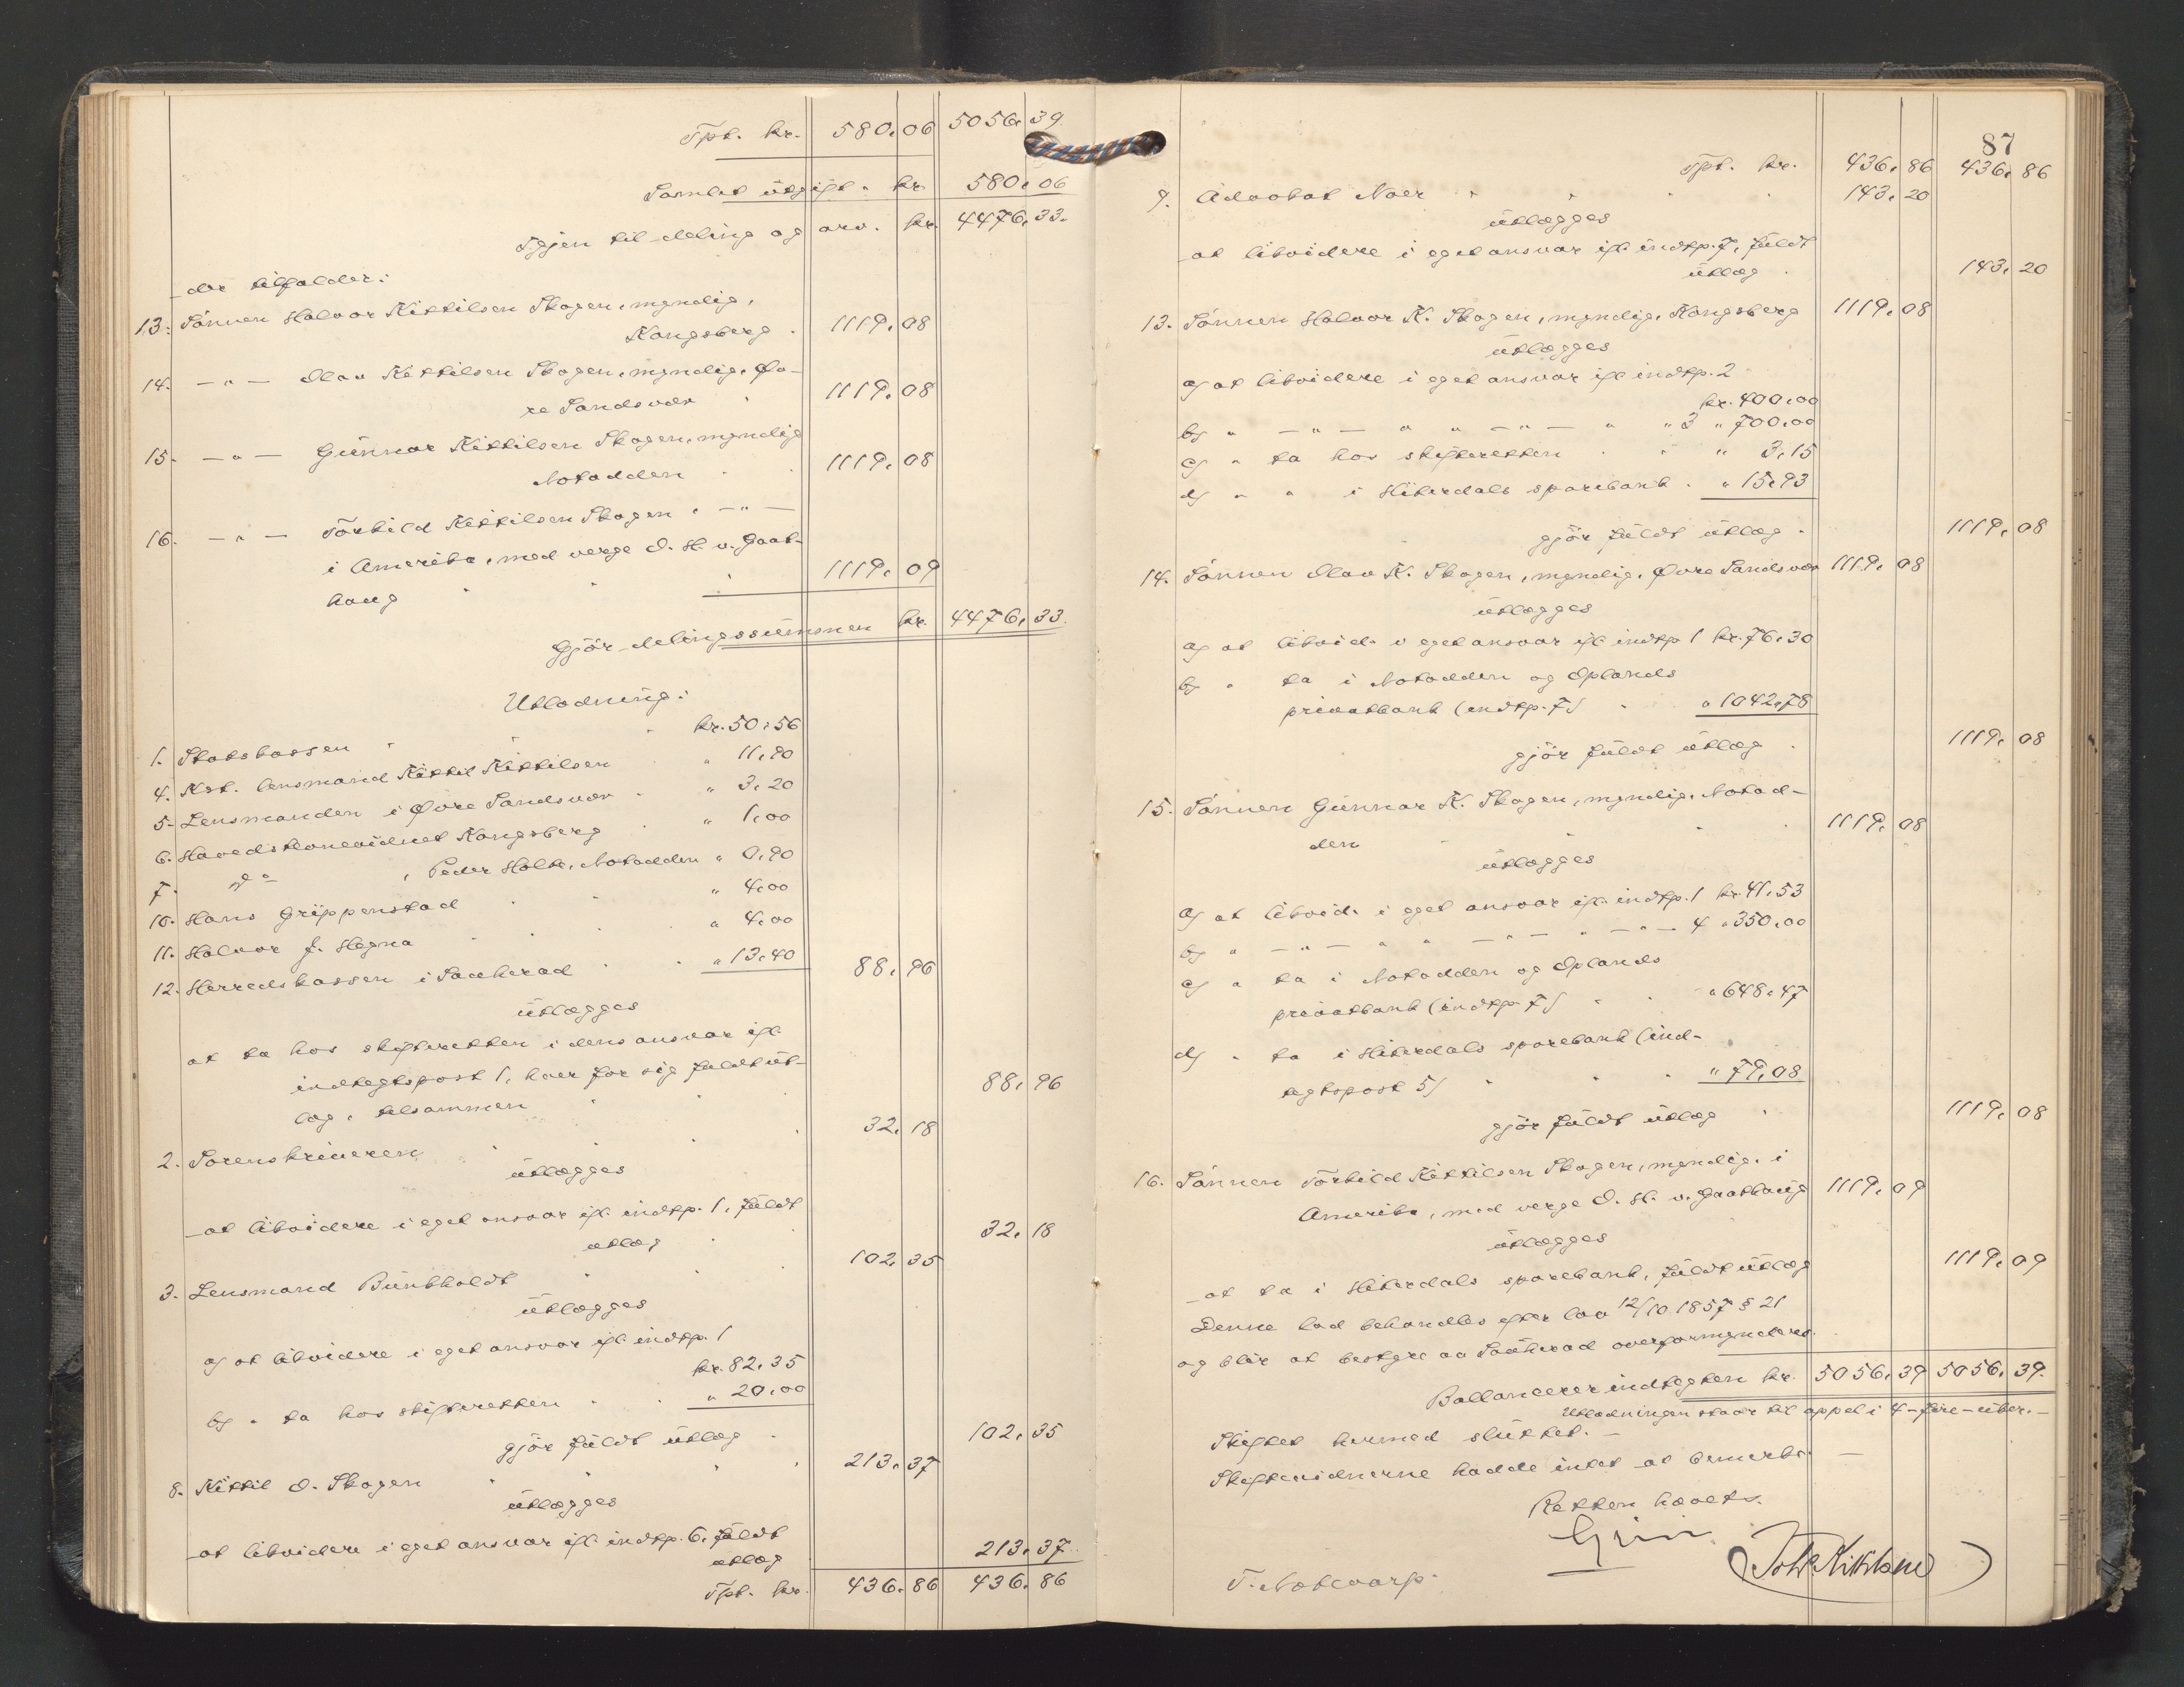 Tpt. kr. 580,06 5056,39.
Samlet utgift. kr. 580,06
Igjen til deling og arv. kr. 4476,33.
der tilfalder:
13. Sönnen Halvor Kittilsen Skogen, myndig,
Kongsberg. 1119,08
14. —"— Olav Kittilsen Skogen, myndig, Øv-
re Sandsvær 1119,08
15. —"— Gunnar Kittilsen Skogen, myndig
Notodden 1119,08
16. —"— Torkild Kittilsen Skogen, —"—
i Amerika, med verge O. H. v. Gaat-
haug 1119,09
Gjör delingssummen kr. 4476,33.
Utlodning:
1. Statskassen kr. 50,56
4. Kst. lensmand Kittil Kittilsen " 11,90
5. Lensmanden i Øvre Sandsvær " 3,20
6. Hovedstevnevidnet Kongsberg " 1,00
7. do , Peder Holte, Notodden " 0,90
10. Hans Grippenstad " 4,00
11. Halvor J. Hegna " 4,00
12. Herredskassen i Sauherad " 13,40 88,96
utlægges
at ta hos skifteretten i dens ansvar ifl.
indtegtspost 1, hver for sig fuldt ut-
læg, tilsammen 88,96
2. Sorenskriveren 32,18
utlægges
at likvidere i eget ansvar ifl. indtp. 1, fuldt
utlæg 32,18
3. Lensmand Bunkholdt 102,35
utlægges
a) at likvidere i eget ansvar ifl. indtp. 1
kr. 82,35
b) " ta hos skifteretten " 20,00
gjör fuldt utlæg 102,35
8. Kittil O. Skogen 213,37
utlægges
at likvidere i eget ansvar ifl. indtp. 6, fuldt
utlæg 213,37
Tpt. kr. 436,86 436,86
87
Tpt. kr. 436,86 436,86
9. Advokat Noer 143,20
utlægges
at likvidere i eget ansvar ifl. indtp. 7, fuldt
utlæg 143,20
13. Sönnen Halvor K. Skogen, myndig, Kongsberg 1119,08
utlægges
a) at likvidere i eget ansvar ifl. indtp. 2
kr. 400,00
b) " —"— " " —"— " " 3 " 700,00
c) " ta hos skifteretten " 3,15
d) " " i Hiterdals sparebank " 15,93
gjör fuldt utlæg 1119,08
14. Sönnen Olav K. Skogen, myndig, Øvre Sandsvær 1119,08
utlægges
a) at likvid. i eget ansvar ifl. indtp 1 kr. 76,30
b) " ta i Notodden og Oplands
privatbank (indtp. 7) " 1042,78
gjör fuldt utlæg 1119,08
15. Sönnen Gunnar K. Skogen, myndig, Notod-
den 1119,08
utlægges
a) at likvid. i eget ansvar ifl. indtp. 1 kr. 41,53
b) " —"— " " —"— " —"— 4 " 350,00
c) " ta i Notodden og Oplands
privatbank (indtp. 7) " 648,47
d) " ta i Hiterdals sparebank (ind-
tegtspost 5) " 79,08
gjör fuldt utlæg 1119,08
16. Sönnen Torkild Kittilsen Skogen, myndig, i
Amerika, med verge O. H. v. Gaathaug 1119,09
utlægges
at ta i Hiterdals sparebank, fuldt utlæg 1119,09
Denne lod behandles efter lov 12/10 1857 § 21
og blir at bestyre av Sauherad overformynderi.
Ballancerer indtegten kr. 5056,39 5056,39.
Utlodningen staar til appel i 4-fire-uker.—
Skiftet hermed sluttet.—
Skiftevidnerne hadde intet at bemerke.—
Retten hævet.
T. Notevarp.